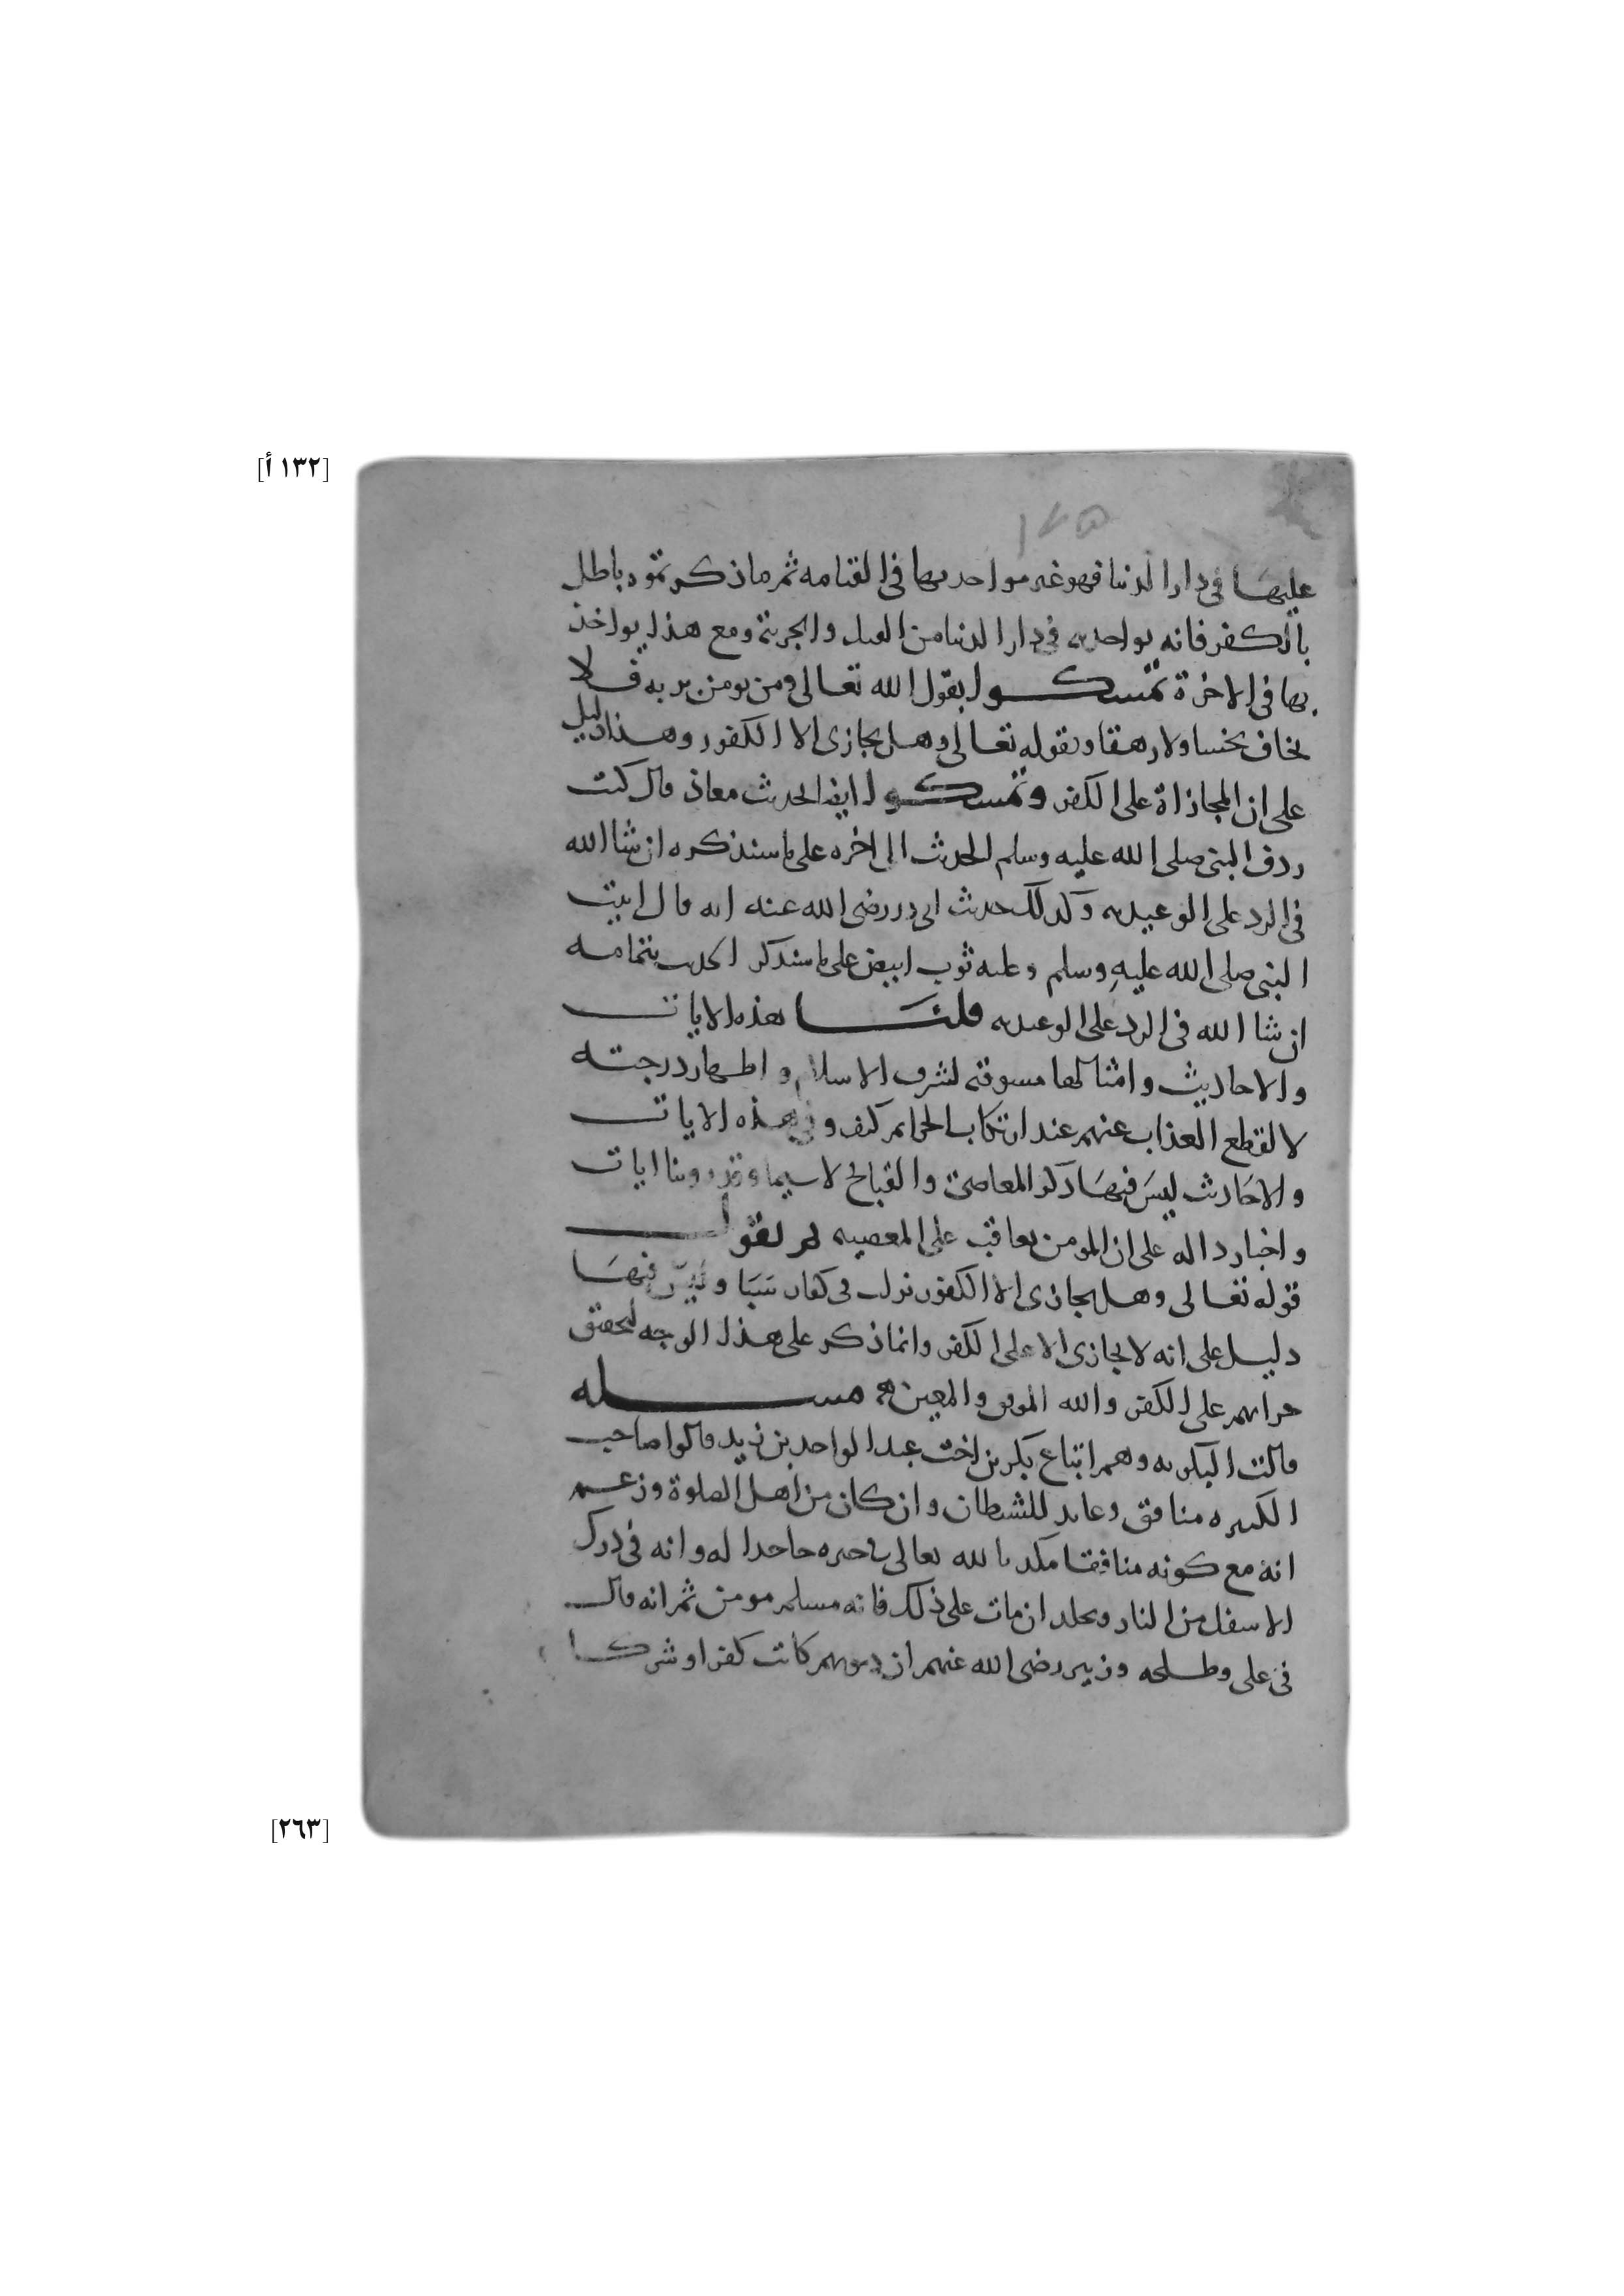 [١٣٢ أ]
١٢٥
عليها في دار الدنيا فهو غير مواخد بها في القيامه ثم ما ذكر تموه باطل
بالكفر فانه يواخد به في دار الدنيا من القتل والجزية ومع هذا يواخذ
بها في الاخرة تمسكوا بقول الله تعالى ومن يومن بربه فلا
يخاف بخسا ولا رهقا وبقوله تعالى وهل يجازى الا الكفور وهذا دليل
على ان المجازاة على الكفر وتمسكوا ايضا لحديث معاذ قال كنت
ردف النبي صلى الله عليه وسلم الحديث الى اخره على ما سنذكره ان شا الله
في الرد على الوعيديه وكدلك حديث ابي در رضى الله عنه انه قال اتيت
النبي صلى الله عليه وسلم وعليه ثوب ابيض على ما سندكر الحديث بتمامه
ان شا الله في الرد على الوعيديه قلنا هذه الايات
والاحاديث وامثالها مسوقة لشرف الاسلام واظهار درجته
لا لقطع العذاب عنهم عند ارتكاب الحرام كيف وفي هذه الايات
والاحاديث ليس فيها دكر المعاصي والقبائح لا سيما وقد روينا ايات
واخبار داله على ان المومن يعاقب على المعصيه ثم نقول
قوله تعالى وهل يجازى الا الكفور نزلت في كفار سبا وليس فيها
دليل على انه لا يجازى الا على الكفر وانما ذكر على هذا الوجه لتحقيق
جزائهم على الكفر والله الموفق والمعين مسله
قالت البكريه وهم اتباع بكر بن اخت عبد الواحد بن زيد قالوا صاحب
الكبيره منافق وعابد للشيطان وان كان من اهل الصلوة وزعم
انه مع كونه منافقا مكدبا لله تعالى جاحدا له وانه في درك
الاسفل من النار ويخلد ان مات على ذلك فانه مسلم مومن ثم انه قال
في على وطلحه وزبير رضى الله عنهم ان ذنوبهم كانت كفرا وشركا
[٢٦٣]